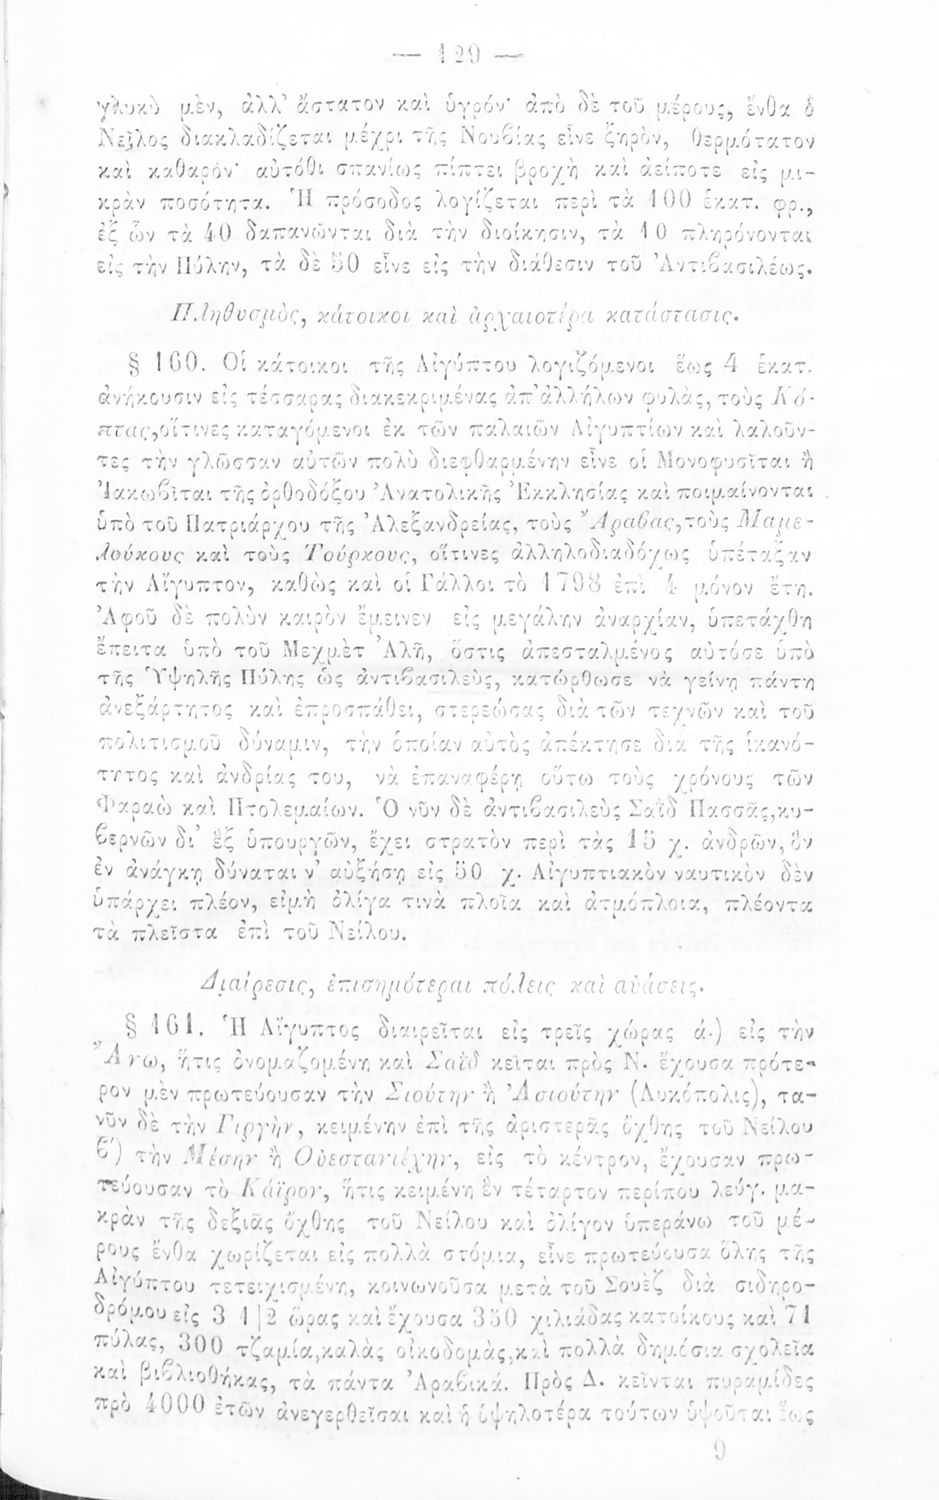 — 129 —
γλυκὺ μὲν, ἀλλ’ ἄστατον καὶ ὑγρόν· ἀπὸ δὲ τοῦ μέρους, ἔνθα ὁ
Νεῖλος διακλαδίζεται μέχρι τῆς Νουβίας εἶνε ξηρὸν, θερμότατον
καὶ καθαρόν· αὐτόθι σπανίως πίπτει βροχὴ καὶ ἀείποτε εἰς μι-
κρὰν ποσότητα. Ἡ πρόσοδος λογίζεται περὶ τὰ 100 ἑκατ. φρ.,
ἐξ ὧν τὰ 40 δαπανῶνται διὰ τὴν διοίκησιν, τὰ 10 πληρόνονται
εἰς τὴν Πύλην, τὰ δὲ 50 εἶνε εἰς τὴν διάθεσιν τοῦ Ἀντιβασιλέως.
Πληθυσμὸς, κάτοικοι καὶ ἀρχαιοτέρα κατάστασις.
§ 160. Οἱ κάτοικοι τῆς Αἰγύπτου λογιζόμενοι ἕως 4 ἑκατ.
ἀνήκουσιν εἰς τέσσαρας διακεκριμένας ἀπ’ ἀλλήλων φυλὰς, τοὺς Κό-
πτας, οἵτινες καταγόμενοι ἐκ τῶν παλαιῶν Αἰγυπτίων καὶ λαλοῦν-
τες τὴν γλῶσσαν αὐτῶν πολὺ διεφθαρμένην εἶνε οἱ Μονοφυσῖται ἢ
Ἰακωβῖται τῆς ὀρθοδόξου Ἀνατολικῆς Ἐκκλησίας καὶ ποιμαίνονται
ὑπὸ τοῦ Πατριάρχου τῆς Ἀλεξανδρείας, τοὺς Ἄραβας, τοὺς Μαμε-
λούκους καὶ τοὺς Τούρκους, οἵτινες ἀλληλοδιαδόχως ὑπέταξαν
τὴν Αἴγυπτον, καθὼς καὶ οἱ Γάλλοι τὸ 1798 ἐπὶ 4 μόνον ἔτη.
Ἀφοῦ δὲ πολὺν καιρὸν ἔμεινεν εἰς μεγάλην ἀναρχίαν, ὑπετάχθη
ἔπειτα ὑπὸ τοῦ Μεχμὲτ Ἀλῆ, ὅστις ἀπεσταλμένος αὐτόσε ὑπὸ
τῆς Ὑψηλῆς Πύλης ὡς ἀντιβασιλεὺς, κατώρθωσε νὰ γείνῃ πάντη
ἀνεξάρτητος καὶ ἐπροσπάθει, στερεώσας διὰ τῶν τεχνῶν καὶ τοῦ
πολιτισμοῦ δύναμιν, τὴν ὁποίαν αὐτὸς ἀπέκτησε διὰ τῆς ἱκανό-
τυτος καὶ ἀνδρίας του, νὰ ἐπαναφέρῃ οὕτω τοὺς χρόνους τῶν
Φαραὼ καὶ Πτολεμαίων. Ὁ νῦν δὲ ἀντιβασιλεὺς Σαῒδ Πασσᾶς, κυ-
βερνῶν δι’ ἓξ ὑπουργῶν, ἔχει στρατὸν περὶ τὰς 15 χ. ἀνδρῶν, ὃν
ἐν ἀνάγκῃ δύναται ν’ αὐξήσῃ εἰς 50 χ. Αἰγυπτιακὸν ναυτικὸν δὲν
ὑπάρχει πλέον, εἰμὴ ὀλίγα τινὰ πλοῖα καὶ ἀτμόπλοια, πλέοντα
τὰ πλεῖστα ἐπὶ τοῦ Νείλου.
Διαίρεσις, ἐπισημότεραι πόλεις καὶ αὐάσεις.
§ 161. Ἡ Αἴγυπτος διαιρεῖται εἰς τρεῖς χώρας ά.) εἰς τὴν
Ἄνω, ἥτις ὀνομαζομένη καὶ Σαῒδ κεῖται πρὸς Ν. ἔχουσα πρότε-
ρον μὲν πρωτεύουσαν τὴν Σιούτην ἢ Ἀσιούτην (Λυκόπολις), τα-
νῦν δὲ τὴν Γιργὴν, κειμένην ἐπὶ τῆς ἀριστερᾶς ὄχθης τοῦ Νείλου
β΄) τὴν Μέσην ἢ Οὐεστανιέχην, εἰς τὸ κέντρον, ἔχουσαν πρω-
τεύουσαν τὸ Κάϊρον, ἥτις κειμένη ἓν τέταρτον περίπου λεύγ. μα-
κρὰν τῆς δεξιᾶς ὄχθης τοῦ Νείλου καὶ ὀλίγον ὑπεράνω τοῦ μέ-
ρους ἔνθα χωρίζεται εἰς πολλὰ στόμια, εἶνε πρωτεύουσα ὅλης τῆς
Αἰγύπτου τετειχισμένη, κοινωνοῦσα μετὰ τοῦ Σουὲζ διὰ σιδηρο-
δρόμου εἰς 3 1|2 ὥρας καὶ ἔχουσα 350 χιλιάδας κατοίκους καὶ 71
πύλας, 300 τζαμία, καλὰς οἰκοδομὰς, καὶ πολλὰ δημόσια σχολεῖα
καὶ βιβλιοθήκας, τὰ πάντα Ἀραβικά. Πρὸς Δ. κεῖνται πυραμίδες
πρὸ 4000 ἐτῶν ἀνεγερθεῖσαι καὶ ἡ ὑψηλοτέρα τούτων ὑψοῦται ἕως
9